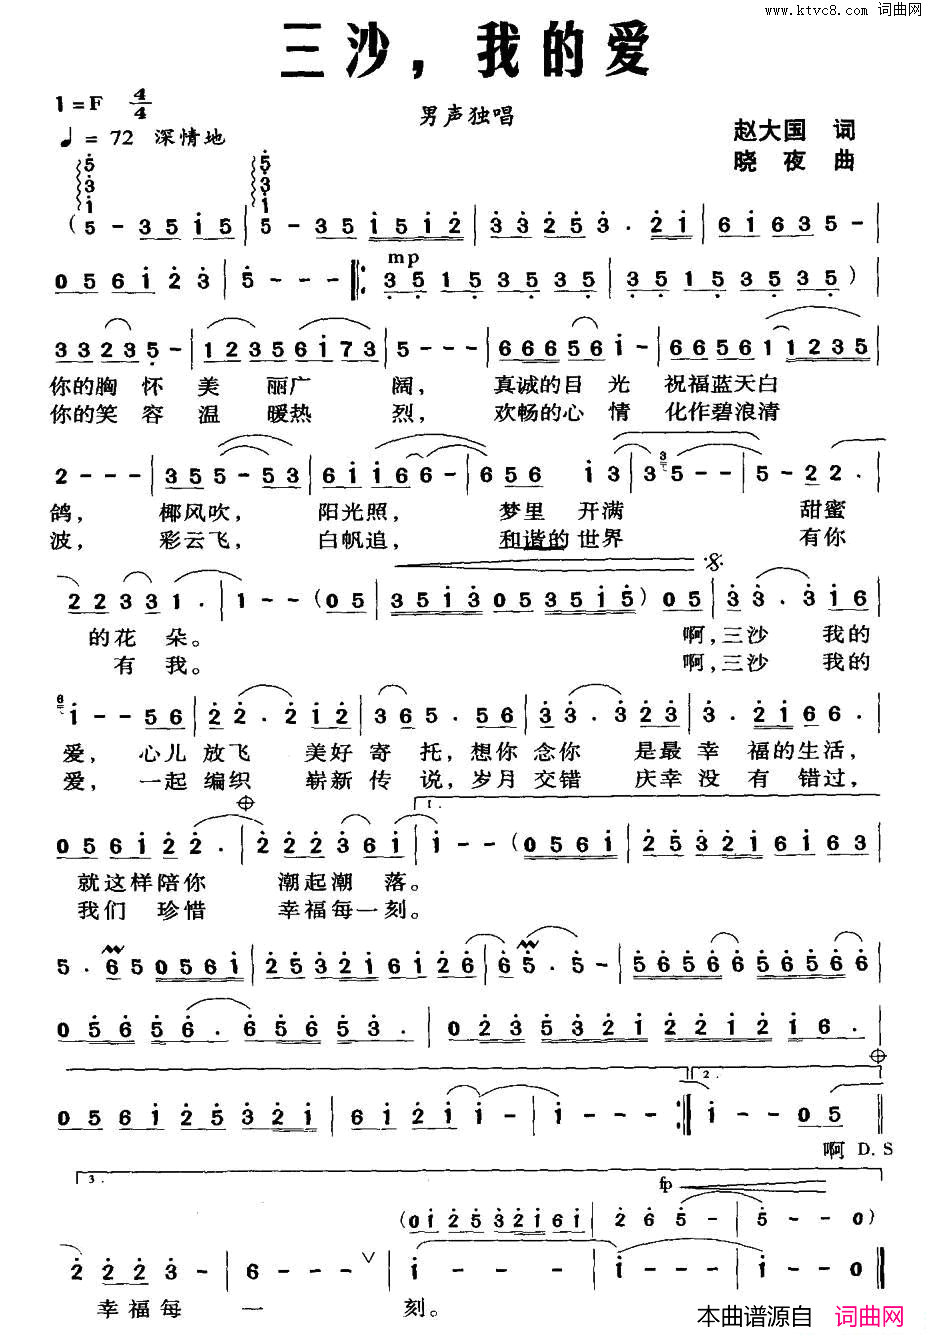 www.ktvc8.com 词曲网
三沙，我的爱
1=F 4/4
男声独唱
♩= 72 深情地
赵大国 词
晓夜 曲
(5 - 3 5 i 5 | 5 - 3 5 i 5 i 2 | 3 3 2 5 3 . 2 i | 6 i 6 3 5 - |
mp
0 5 6 i 2 3 | 5 - - - |: 3 5 1 5 3 5 3 5 | 3 5 1 5 3 5 3 5 )
3 3 2 3 5 - | 1 2 3 5 6 i 7 3 | 5 - - - | 6 6 6 5 6 i - | 6 6 5 6 1 1 2 3 5 |
你的胸 怀 美 丽广 阔， 真诚的目 光 祝福蓝天白
你的笑 容 温 暖热 烈， 欢畅的心 情 化作碧浪清
2 - - - | 3 5 5 - 5 3 | 6 i i 6 6 - | 6 5 6 i 3 | 3 5 - - | 5 - 2 2 . |
鸽， 椰风吹， 阳光照， 梦里 开满 甜蜜
波， 彩云飞， 白帆追， 和谐的 世界 有你
2 2 3 3 1 . | 1 - - (0 5 | 3 5 i 3 0 5 3 5 i 5 ) 0 5 | 3 3 . 3 i 6 |
的花 朵。 啊，三沙 我的
有 我。 啊，三沙 我的
i - - 5 6 | 2 2 . 2 i 2 | 3 6 5 . 5 6 | 3 3 . 3 2 3 | 3 . 2 i 6 6 . |
爱， 心儿 放飞 美好 寄 托，想你 念你 是最 幸 福的生活，
爱， 一起 编织 崭新 传 说，岁月 交错 庆幸 没 有 错过，
1.
0 5 6 i 2 2 . | 2 2 2 3 6 i | i - - (0 5 6 i | 2 5 3 2 i 6 i 6 3 |
就这样陪你 潮起潮 落。
我们 珍惜 幸福每一刻。
5 . 6 5 0 5 6 i | 2 5 3 2 i 6 i 2 6 | 6 5 . 5 - | 5 6 5 6 6 5 6 5 6 6 |
0 5 6 5 6 . 6 5 6 5 3 . | 0 2 3 5 3 2 i 2 2 i 2 i 6 . |
2.
0 5 6 i 2 5 3 2 i | 6 i 2 i i - | i - - - :| i - - 0 5 ||
啊 D.S
3.
fp
(0 i 2 5 3 2 i 6 i | 2 6 5 - | 5 - - 0 )
2 2 2 3 - | 6 - - - | i - - - | i - - - | i - - - ||
幸福每 一 刻。
本曲谱源自 词曲网